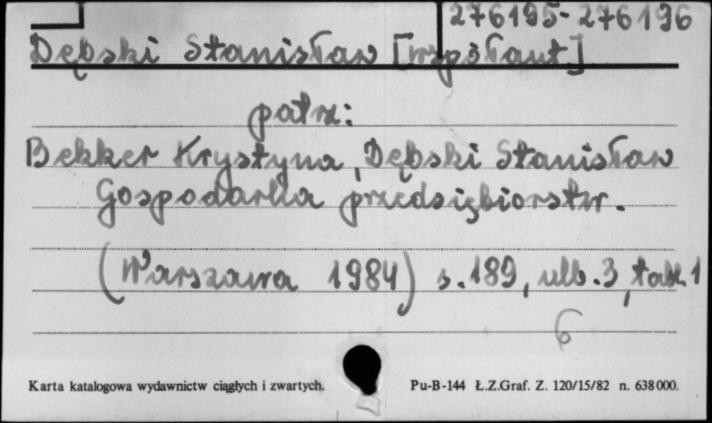 276195-276196
Dębski Stanisław [współaut]
patrz:
Bekker Krystyna, Dębski Stanisław
Gospodarka przedsiębiorstw.
(Warszawa 1984) s. 189, ulb. 3, tabl. 1
6
Karta katalogowa wydawnictw ciągłych i zwartych. Pu-B-144 Ł.Z.Graf. Z. 120/15/82 n. 638000.